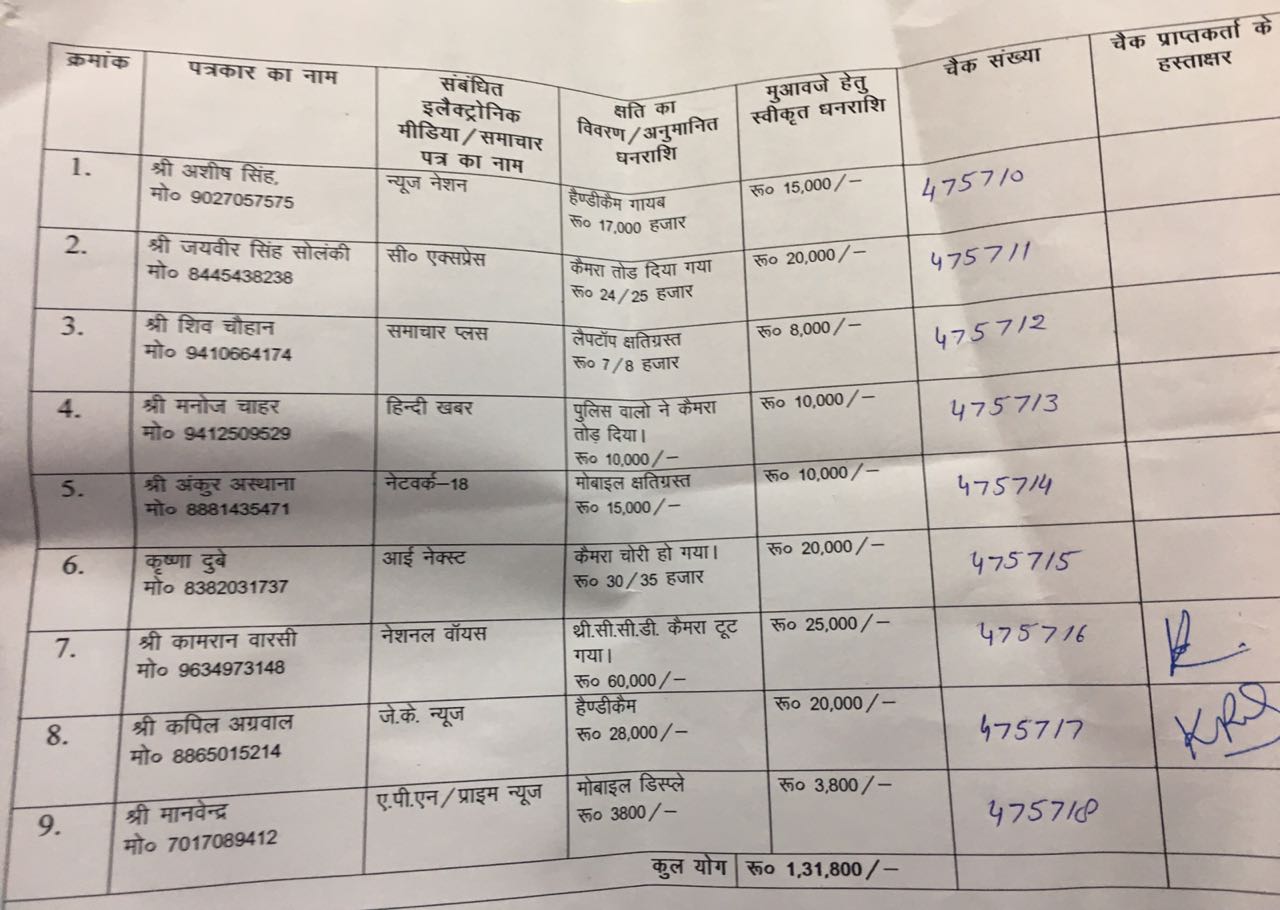 क्रमांक
पत्रकार का नाम
संबंधित
इलैक्ट्रोनिक
मीडिया/समाचार
पत्र का नाम
क्षति का
विवरण/अनुमानित
धनराशि
मुआवजे हेतु
स्वीकृत धनराशि
चैक संख्या
चैक प्राप्तकर्ता के
हस्ताक्षर
1.
श्री अशीष सिंह,
मो० 9027057575
न्यूज नेशन
हैण्डीकैम गायब
रू० 17,000 हजार
रू० 15,000/–
475710
2.
श्री जयवीर सिंह सोलंकी
मो० 8445438238
सी० एक्सप्रेस
कैमरा तोड़ दिया गया
रू० 24/25 हजार
रू० 20,000/–
475711
3.
श्री शिव चौहान
मो० 9410664174
समाचार प्लस
लैपटॉप क्षतिग्रस्त
रू० 7/8 हजार
रू० 8,000/–
475712
4.
श्री मनोज चाहर
मो० 9412509529
हिन्दी खबर
पुलिस वालो ने कैमरा
तोड़ दिया।
रू० 10,000/–
रू० 10,000/–
475713
5.
श्री अंकुर अस्थाना
मो० 8881435471
नेटवर्क–18
मोबाइल क्षतिग्रस्त
रू० 15,000/–
रू० 10,000/–
475714
6.
कृष्णा दुबे
मो० 8382031737
आई नेक्स्ट
कैमरा चोरी हो गया।
रू० 30/35 हजार
रू० 20,000/–
475715
7.
श्री कामरान वारसी
मो० 9634973148
नेशनल वॉयस
थी.सी.सी.डी. कैमरा टूट
गया।
रू० 60,000/–
रू० 25,000/–
475716
8.
श्री कपिल अग्रवाल
मो० 8865015214
जे.के. न्यूज
हैण्डीकैम
रू० 28,000/–
रू० 20,000/–
475717
9.
श्री मानवेन्द्र
मो० 7017089412
ए.पी.एन/प्राइम न्यूज
मोबाइल डिस्प्ले
रू० 3800/–
रू० 3,800/–
475718
कुल योग
रू० 1,31,800/–